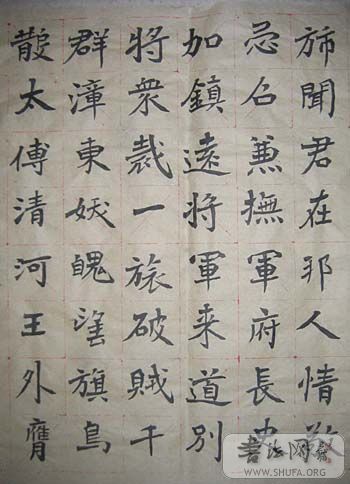 聞君在邪人情
召兼撫軍府長史
加鎮遠將軍来道別
將衆裁一旅破賊千
群漳東妖望旗鳥
散太傅清河王外膺
WWW.SHUFA.ORG